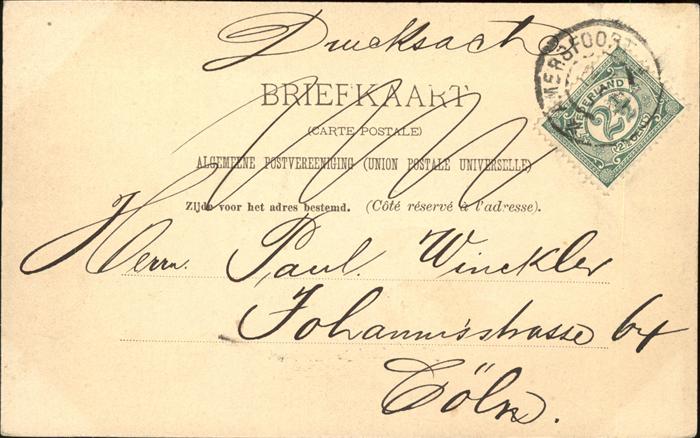 Drucksache
AMERSFOORT
BRIEFKAART
(CARTE POSTALE)
ALGEMEENE POSTVEREENIGING (UNION POSTALE UNIVERSELLE)
Zijde voor het adres bestemd. (Côté réservé à l'adresse).
NEDERLAND
2½
2½ CENT
Herrn. Paul Winckler
Johannisstrasse 64
Cöln.